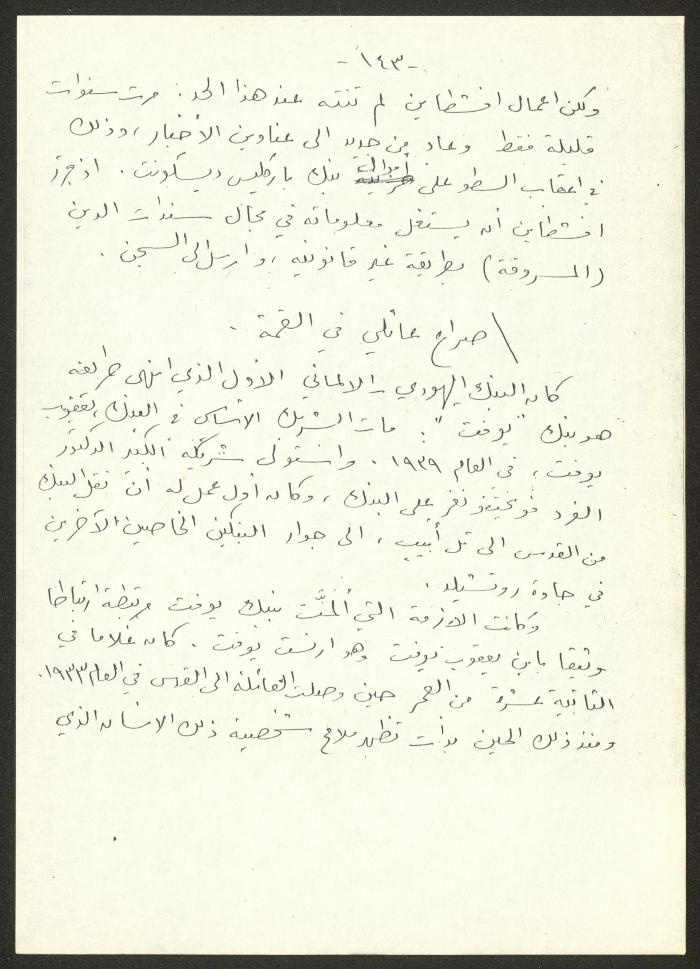 -١٤٣-
ولكن اعمال افشطاين لم تنته عند هذا الحد: مرت سنوات
قليلة فقط وعاد من جديد الى عناوين الأخبار، وذلك
في اعقاب السطو على أموال بنك باركليس ديسكونت. اذ
افشطاين أن يستغل معلوماته في مجال سندات الدين
(المسروقة) بطريقة غير قانونية، وارسل الى السجن.
صراع عائلي في القمة.
كان البنك اليهودي - الالماني الأول الذي انهى طريقه
هو بنك "يوفت": مات الشريك الأساسي في البنك، يعقوب
يوفت، في العام ١٩٣٩. واستولى شريكه الكبير الدكتور
الفرد على البنك، وكان أول عمل له أن نقل البنك
من القدس الى تل أبيب، الى جوار البنكين الخاصين الآخرين
في جادة روتشيلد.
وكانت الازمة التي ألمَّت ببنك يوفت مرتبطة ارتباطا
وثيقا بابن يعقوب يوفت وهو ارنست يوفت. كان غلاما في
الثانية عشرة من العمر حين وصلت العائلة الى القدس في العام ١٩٣٣.
ومنذ ذلك الحين بدأت تظهر ملامح شخصية ذلك الانسان الذي